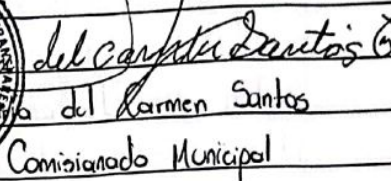 del Carmen Santos
del Carmen Santos
Comisianado Municipal